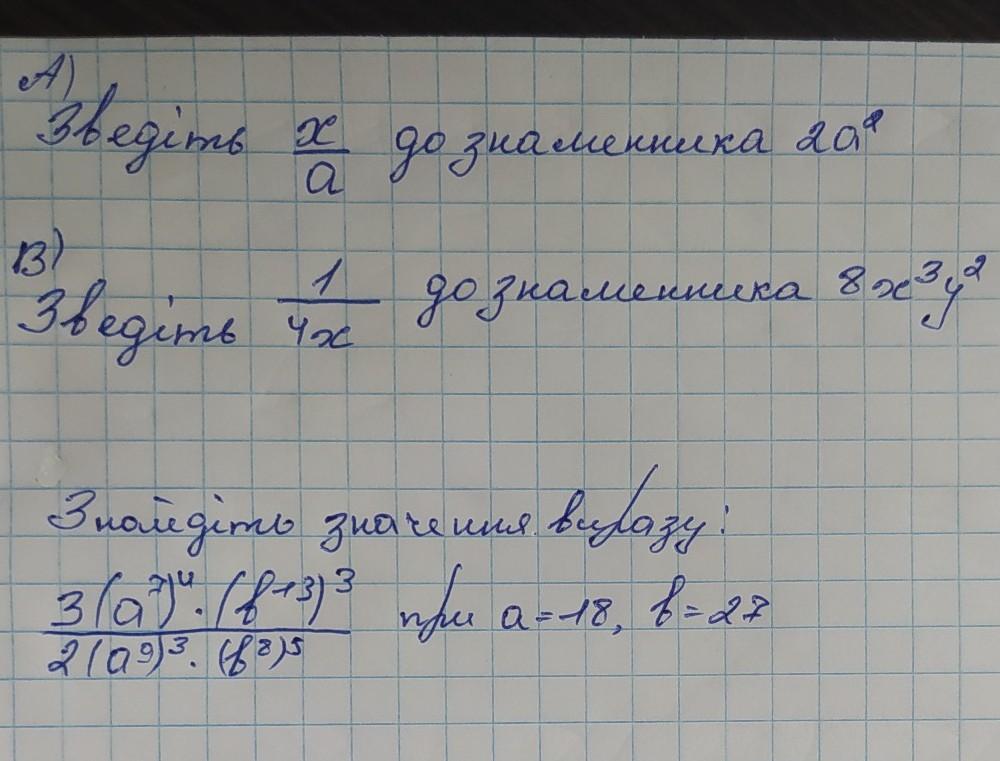 А)
Зведіть x/a до знаменника 2a²
В)
Зведіть 1/4x до знаменника 8x³y²
Знайдіть значення виразу:
3(a⁷)⁴·(b¹³)³/2(a⁹)³·(b⁸)⁵ при a=18, b=27